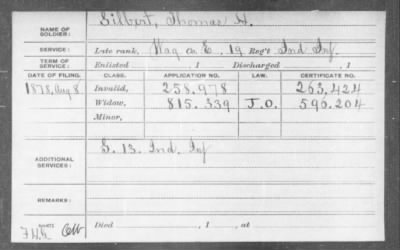 NAME OF SOLDIER: Gilbert, Thomas H.
SERVICE: Late rank, Wag Co. E, 19 Reg't Ind Inf.
TERM OF SERVICE: Enlisted , 1 Discharged , 1
DATE OF FILING. CLASS. APPLICATION NO. LAW. CERTIFICATE NO.
1878, Aug 8 Invalid, 258.978 263.424
Widow, 815.339 J.O. 596.204
Minor,
ADDITIONAL SERVICES: G. 13. Ind. Inf
REMARKS:
Died , 1 , at